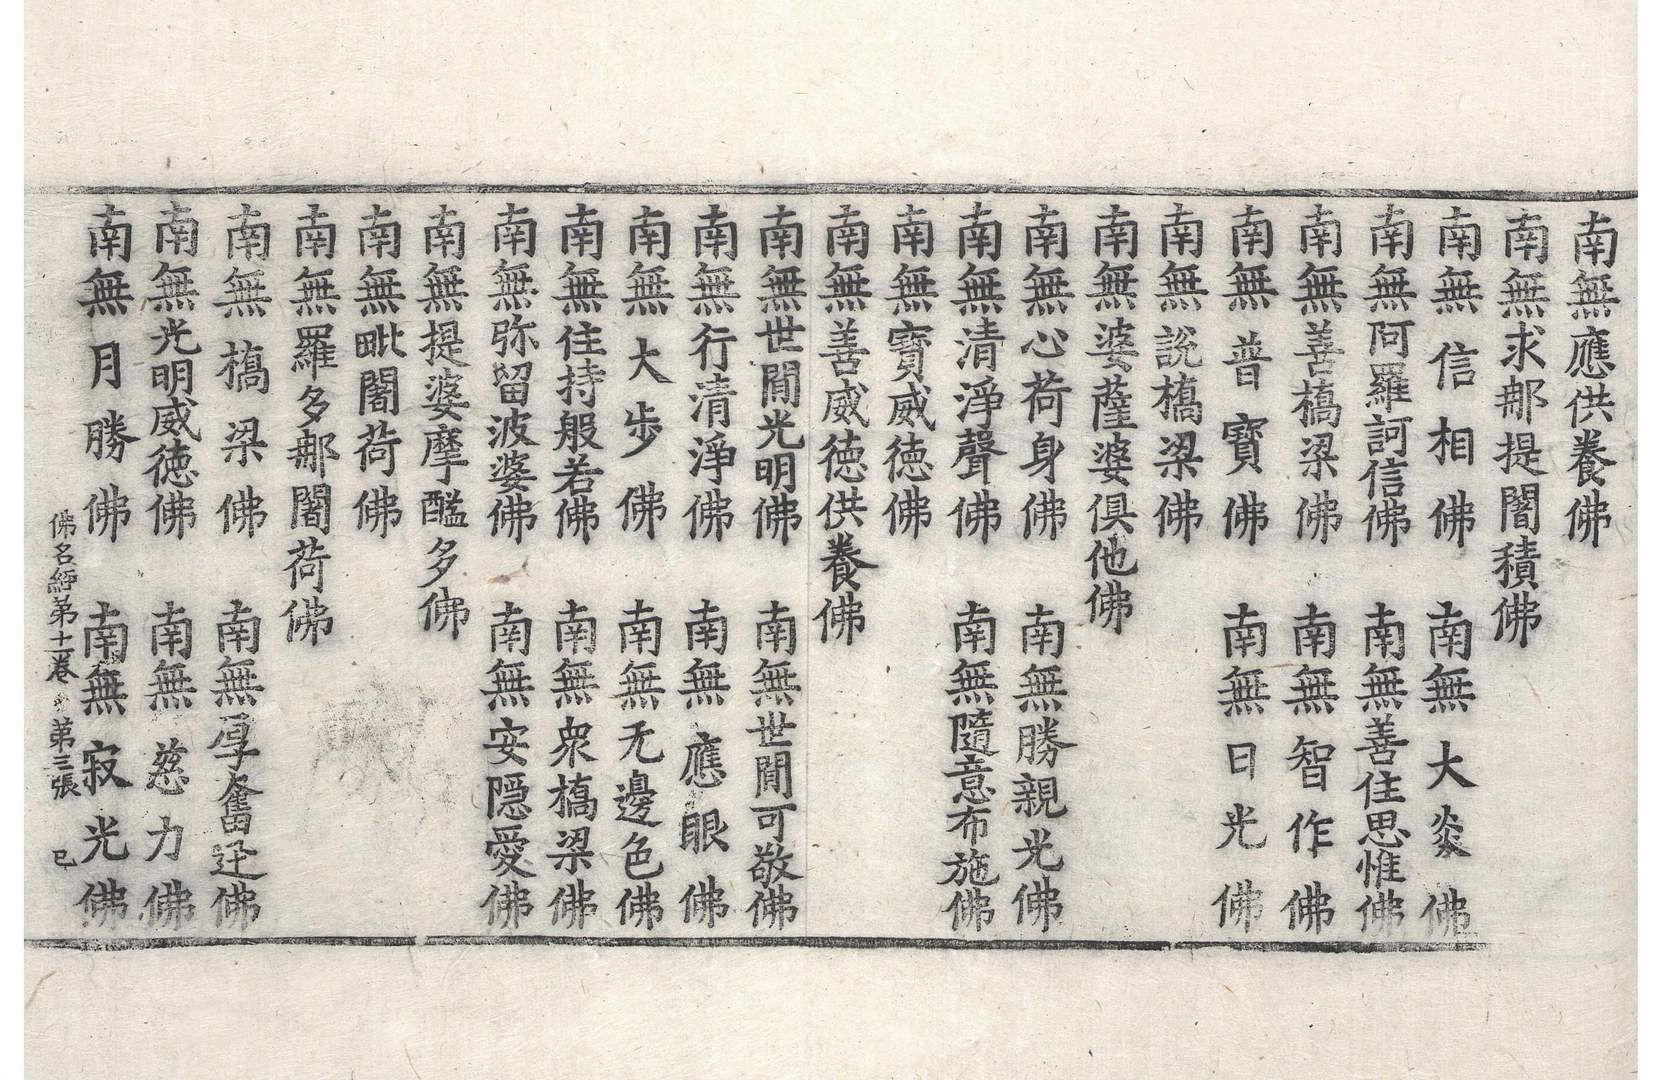 南無應供養佛
南無求那提闍積佛
南無信相佛　南無大炎佛
南無阿羅訶信佛　南無善住思惟佛
南無善橋梁佛　南無智作佛
南無普寶佛　南無日光佛
南無說橋梁佛
南無婆薩婆俱他佛
南無心荷身佛　南無勝親光佛
南無清淨聲佛　南無隨意布施佛
南無寶威德佛
南無善威德供養佛
南無世間光明佛　南無世間可敬佛
南無行清淨佛　南無應眼佛
南無大步佛　南無无邊色佛
南無住持般若佛　南無衆橋梁佛
南無弥留波婆佛　南無安隱愛佛
南無提婆摩醯多佛
南無毗闍荷佛
南無羅多那闍荷佛
南無橋梁佛　南無厚奮迅佛
南無光明威徳佛　南無慈力佛
南無月勝佛　南無寂光佛
佛名經第十一卷　第三張　已